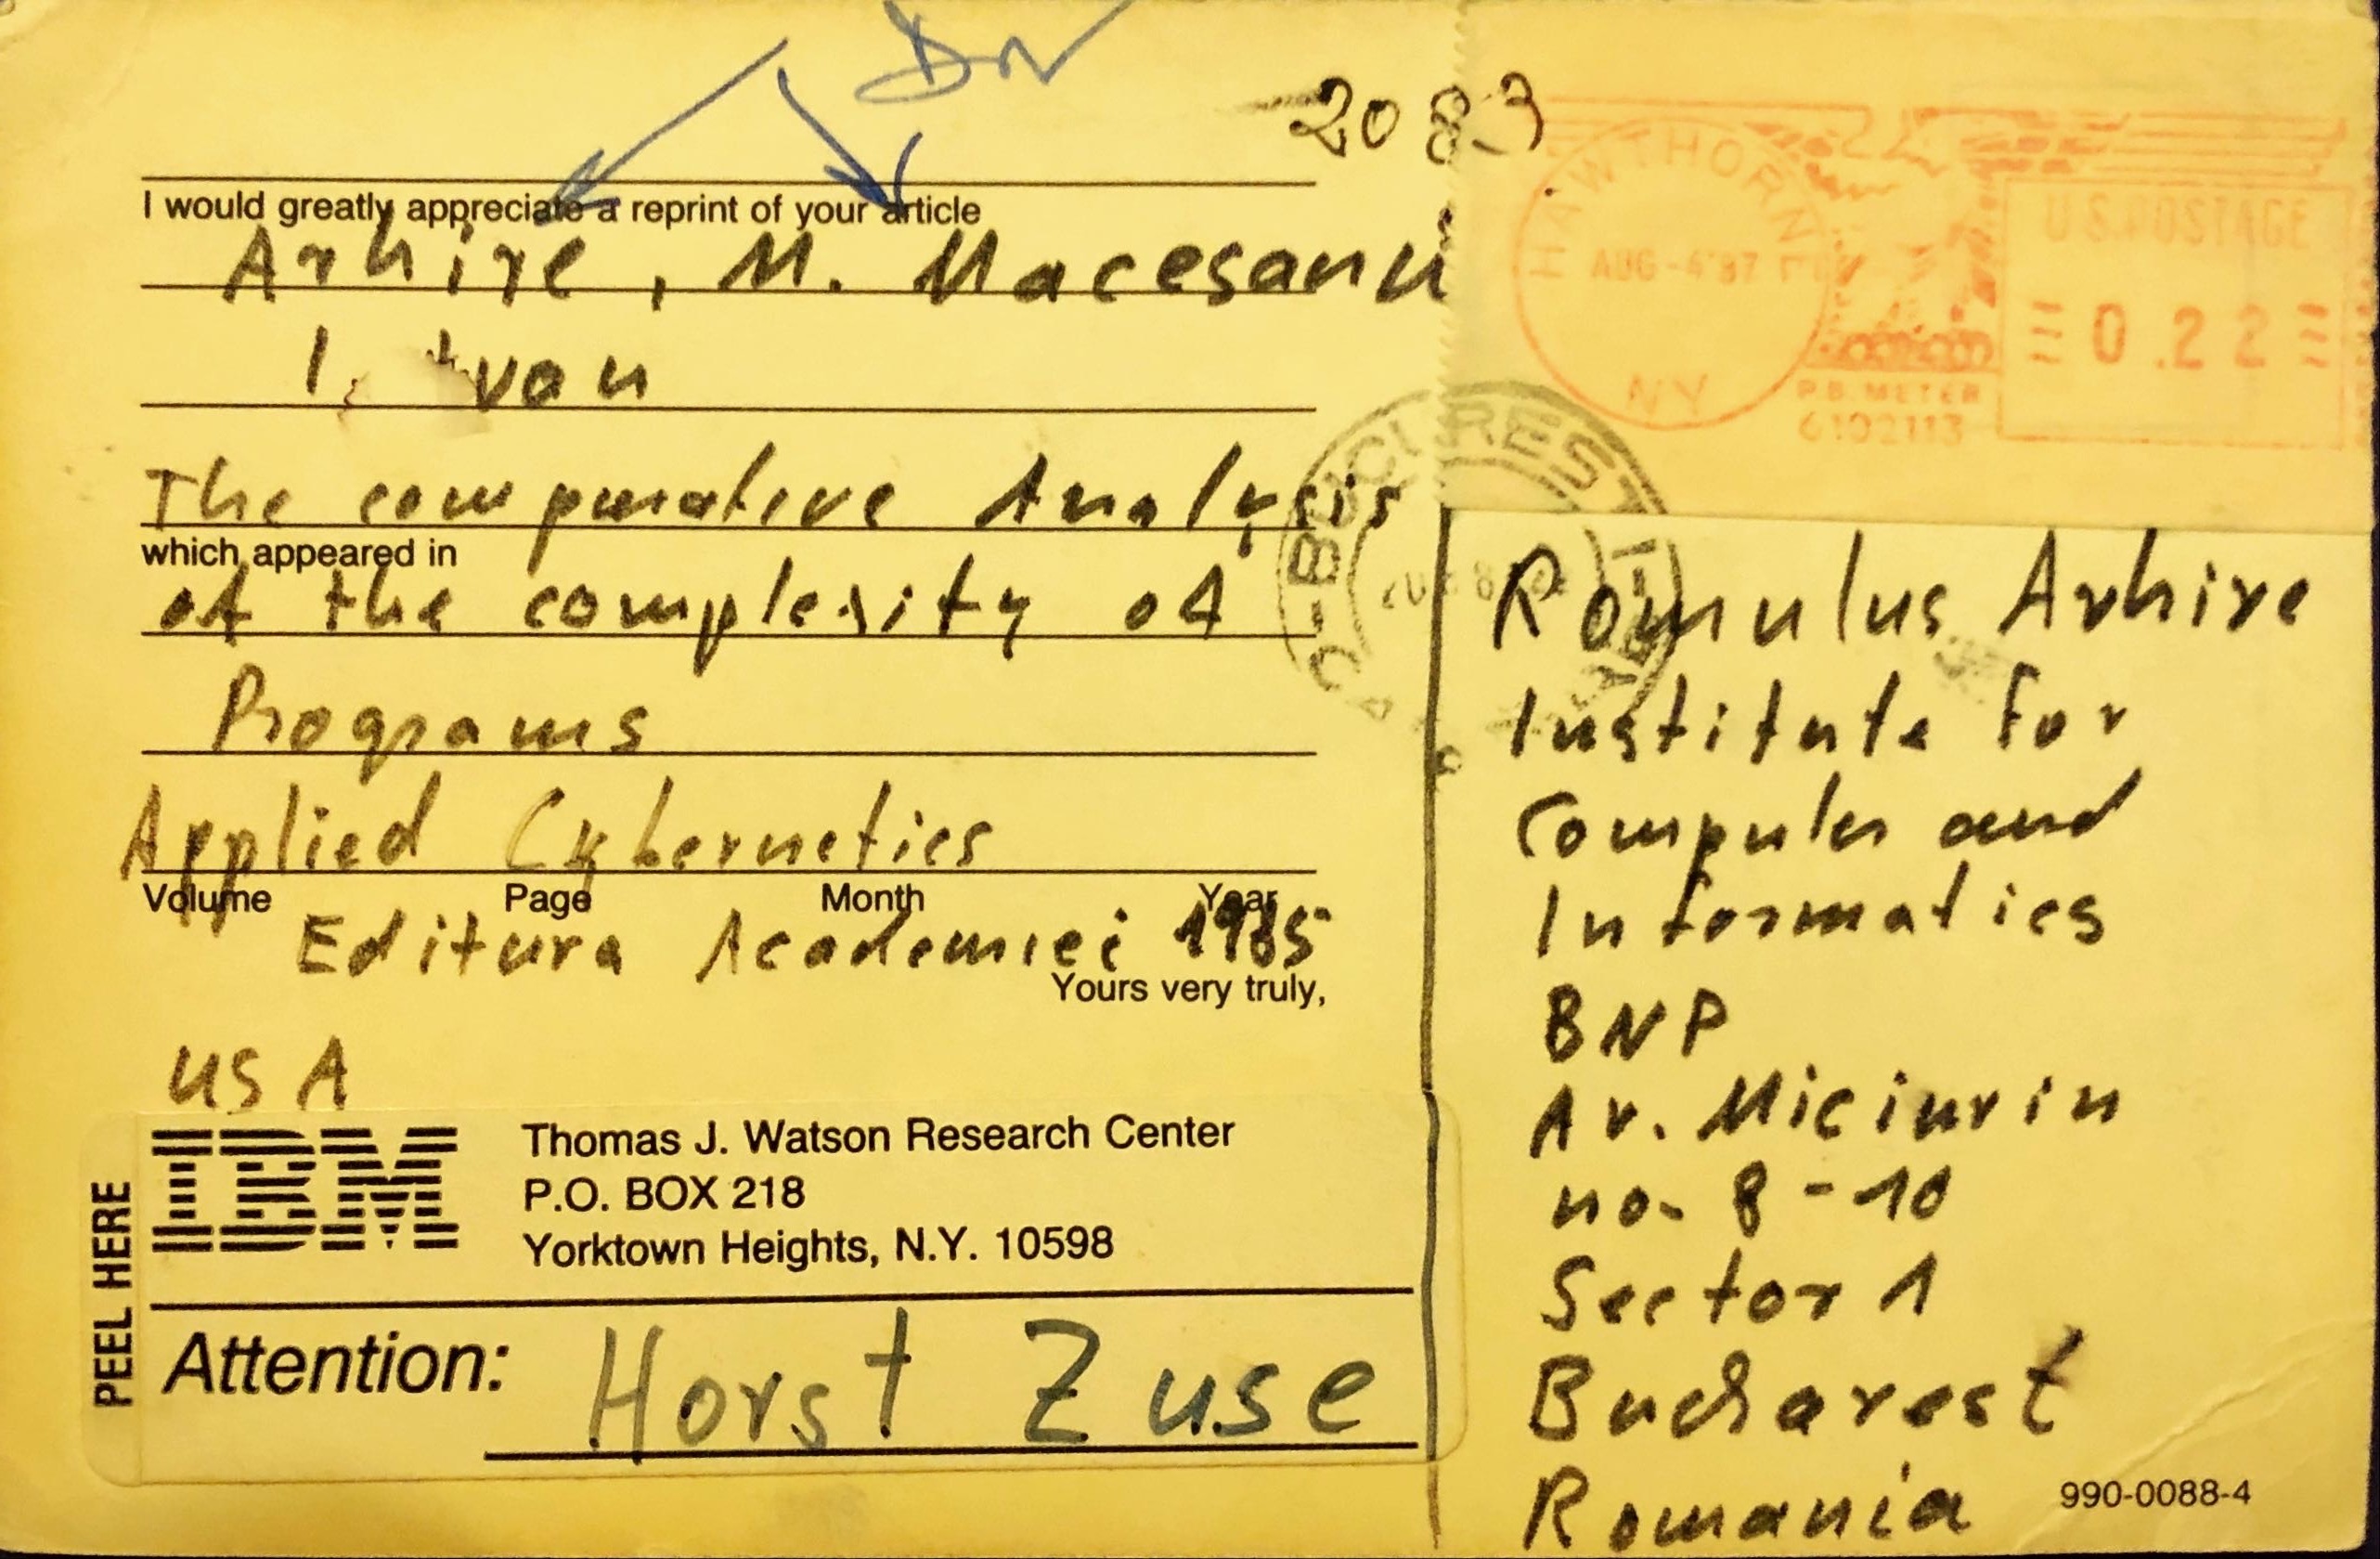 2083
I would greatly appreciate a reprint of your article
Arhire, M. Macesanu
I. Ivan
The comparative Analysis
which appeared in
of the complexity of
Programs
Applied Cybernetics
Volume Page Month Year
Editura Academiei 1985
Yours very truly,
USA
PEEL HERE
IBM
Thomas J. Watson Research Center
P.O. BOX 218
Yorktown Heights, N.Y. 10598
Attention: Horst Zuse
HAWTHORNE
AUG-4'87
NY
P.B. METER
6102113
U.S. POSTAGE
0.22
BUCURESTI
Romulus Arhire
Institute for
Computer and
Informatics
BNP
Av. Miciurin
no. 8-10
Sector 1
Bucharest
Romania
990-0088-4